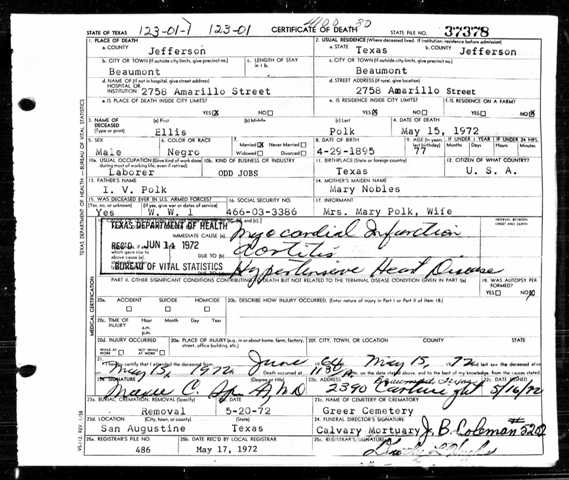 STATE OF TEXAS 123-01-1 123-01 CERTIFICATE OF DEATH STATE FILE NO. 37378
1. PLACE OF DEATH
a. COUNTY Jefferson
2. USUAL RESIDENCE (Where deceased lived. If institution: residence before admission)
a. STATE Texas b. COUNTY Jefferson
b. CITY OR TOWN (If outside city limits, give precinct no.) Beaumont
c. LENGTH OF STAY in 1 b.
c. CITY OR TOWN (If outside city limits, give precinct no.) Beaumont
d. NAME OF (If not in hospital, give street address) HOSPITAL OR INSTITUTION 2758 Amarillo Street
d. STREET ADDRESS (If rural, give location) 2758 Amarillo Street
e. IS PLACE OF DEATH INSIDE CITY LIMITS? YES X NO
e. IS RESIDENCE INSIDE CITY LIMITS? YES X NO
f. IS RESIDENCE ON A FARM? YES NO X
3. NAME OF DECEASED (Type or print) (a) First Ellis (b) Middle (c) Last Polk
4. DATE OF DEATH May 15, 1972
5. SEX Male
6. COLOR OR RACE Negro
7. Married X Never Married Widowed Divorced
8. DATE OF BIRTH 4-29-1895
9. AGE (In years last birthday) 77
IF UNDER 1 YEAR Months Days
IF UNDER 24 HRS. Hours Min.
10a. USUAL OCCUPATION (Give kind of work done during most of working life, even if retired) Laborer
10b. KIND OF BUSINESS OR INDUSTRY ODD JOBS
11. BIRTHPLACE (State or foreign country) Texas
12. CITIZEN OF WHAT COUNTRY? U. S. A.
13. FATHER'S NAME I. V. Polk
14. MOTHER'S MAIDEN NAME Mary Nobles
15. WAS DECEASED EVER IN U.S. ARMED FORCES? (Yes, no, or unknown) Yes (If yes, give war or dates of service) W.W. 1
16. SOCIAL SECURITY NO. 466-03-3386
17. INFORMANT Mrs. Mary Polk, Wife
TEXAS DEPARTMENT OF HEALTH
REC'D JUN 14 1972
BUREAU OF VITAL STATISTICS
INTERVAL BETWEEN ONSET AND DEATH
IMMEDIATE CAUSE (a) Myocardial Infarction
DUE TO (b) Aortitis
DUE TO Hypertensive Heart Disease
PART II. OTHER SIGNIFICANT CONDITIONS CONTRIBUTING TO DEATH BUT NOT RELATED TO THE TERMINAL DISEASE CONDITION GIVEN IN PART I(a)
19. WAS AUTOPSY PERFORMED? YES NO X
20a. ACCIDENT SUICIDE HOMICIDE
20b. DESCRIBE HOW INJURY OCCURRED. (Enter nature of injury in Part I or Part II of item 18.)
20c. TIME OF INJURY Hour a.m. p.m. Month Day Year
20d. INJURY OCCURRED WHILE AT WORK NOT WHILE AT WORK
20e. PLACE OF INJURY (e.g. in or about home, farm, factory, street, office building, etc.)
20f. CITY, TOWN, OR LOCATION COUNTY STATE
21. I hereby certify that I attended the deceased from June 64 May 15, 72 and last saw the deceased alive
May 15, 1972 Death occurred at on the date stated above, and to the best of my knowledge, from the causes stated.
22a. SIGNATURE (Degree or title)
22b. ADDRESS 2390
22c. DATE SIGNED 5/16/72
23a. BURIAL, CREMATION, REMOVAL (Specify) Removal
23b. DATE 5-20-72
23c. NAME OF CEMETERY OR CREMATORY Greer Cemetery
23d. LOCATION (City, town, or county) San Augustine (State) Texas
24. FUNERAL DIRECTOR'S SIGNATURE Calvary Mortuary J. B. Coleman #3202
25a. REGISTRAR'S FILE NO. 486
25b. DATE REC'D BY LOCAL REGISTRAR May 17, 1972
25c. REGISTRAR'S SIGNATURE
TEXAS DEPARTMENT OF HEALTH — BUREAU OF VITAL STATISTICS
MEDICAL CERTIFICATION